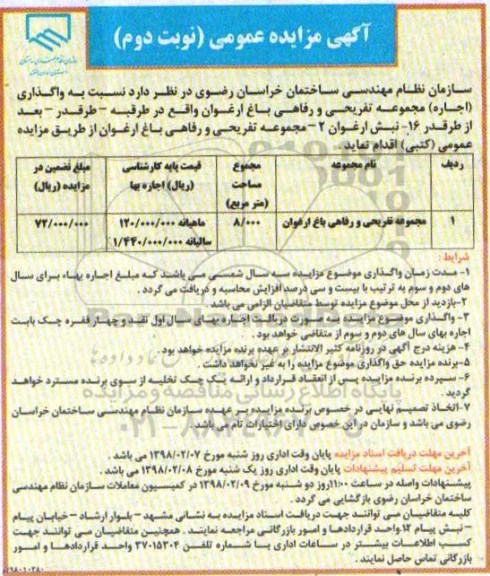 آگهی مزایده عمومی (نوبت دوم)
سازمان نظام مهندسی ساختمان خراسان رضوی در نظر دارد نسبت به واگذاری
(اجاره) مجموعه تفریحی و رفاهی باغ ارغوان واقع در طرقبه – طرقدر – بعد
از طرقدر ۱۶- نبش ارغوان ۲ – مجموعه تفریحی و رفاهی باغ ارغوان از طریق مزایده
عمومی (کتبی) اقدام نماید.
ردیف
نام مجموعه
مجموع مساحت (متر مربع)
قیمت پایه کارشناسی (ریال) اجاره بها
مبلغ تضمین در مزایده (ریال)
۱
مجموعه تفریحی و رفاهی باغ ارغوان
۸/۰۰۰
ماهیانه ۱۲۰/۰۰۰/۰۰۰
سالیانه ۱/۴۴۰/۰۰۰/۰۰۰
۷۲/۰۰۰/۰۰۰
شرایط :
۱- مدت زمان واگذاری موضوع مزایده سه سال شمسی می باشد که مبلغ اجاره بهاء برای سال
های دوم و سوم به ترتیب با بیست و سی درصد افزایش محاسبه و دریافت می گردد .
۲-بازدید از محل موضوع مزایده توسط متقاضیان الزامی می باشد .
۳- واگذاری موضوع مزایده به صورت دریافت اجاره بهای سال اول نقد و چهار فقره چک بابت
اجاره بهای سال های دوم و سوم از متقاضی خواهد بود .
۴- هزینه درج آگهی در روزنامه کثیر الانتشار بر عهده برنده مزایده خواهد بود.
۵-برنده مزایده حق واگذاری موضوع مزایده را به غیر نخواهد داشت.
۶- سپرده برنده مزایده پس از انعقاد قرارداد و ارائه یک چک تخلیه از سوی برنده مسترد خواهد
گردید .
۷-اتخاذ تصمیم نهایی در خصوص برنده مزایده بر عهده سازمان نظام مهندسی ساختمان خراسان
رضوی می باشد و سازمان در این خصوص دارای اختیارات تام می باشد.
آخرین مهلت دریافت اسناد مزایده پایان وقت اداری روز شنبه مورخ ۱۳۹۸/۰۲/۰۷ می باشد .
آخرین مهلت تسلیم پیشنهادات پایان وقت اداری روز یک شنبه مورخ ۱۳۹۸/۰۲/۰۸ می باشد .
پیشنهادات واصله در ساعت ۱۱:۰۰ روز دو شنبه مورخ ۱۳۹۸/۰۲/۰۹ در کمیسیون معاملات سازمان نظام مهندسی
ساختمان خراسان رضوی بازگشایی می گردد .
کلیه متقاضیان می توانند جهت دریافت اسناد مزایده به نشانی مشهد – بلوار ارشاد – خیابان پیام
– نبش پیام ۱۲.واحد قراردادها و امور بازرگانی مراجعه نمایند . همچنین متقاضیان می توانند جهت
کسب اطلاعات بیشتر در ساعات اداری با شماره تلفن ۳۷۰۱۵۳۰۴ واحد قراردادها و امور
بازرگانی تماس حاصل نمایند .